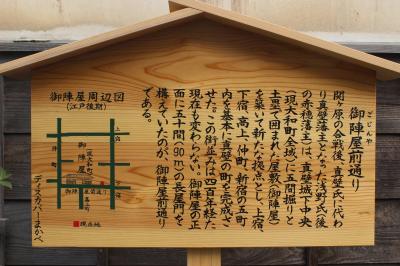 御陣屋前通り
ごじんや
関ヶ原の合戦後、真壁氏に代わ
り真壁藩主となった浅野氏(後
の赤穂藩主)は、真壁城下中央
(現大和町全域)に五間堀りと
土塁で囲まれた屋敷(御陣屋)
を築いて新たな拠点とし、上宿、
下宿、高上、仲町、新宿の五町
内を基本に真壁の町を完成さ
せた。この街並みは四百年経た
現在も変わらない。御陣屋の正
面に五十間(90m)の長屋門を
構えていたのが、御陣屋前通り
である。
御陣屋周辺図
(江戸後期)
上宿
下宿
御陣屋
(現大和町)
御陣屋前通り
現在地
ディスカバーまかべ